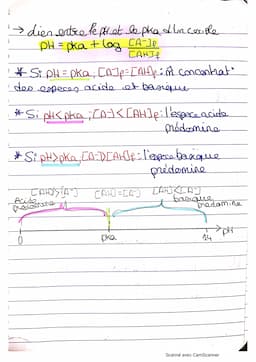 → lien entre le pH et le pka d'un couple
pH = pka + log [A-]f
[AH]f
* Si pH = pka, [A-]f = [AH]f : m concentrat°
des especes acide et basique
* Si pH<pka ; [A-] < [AH]f : l'espece acide
prédomine
* Si pH>pka, [A-]>[AH]f : l'espece basique
prédomine
[AH]>[A-] [AH]=[A-] [AH]<[A-]
Acide basique
prédomine predomine
0 pka 14 pH
Scanné avec CamScanner